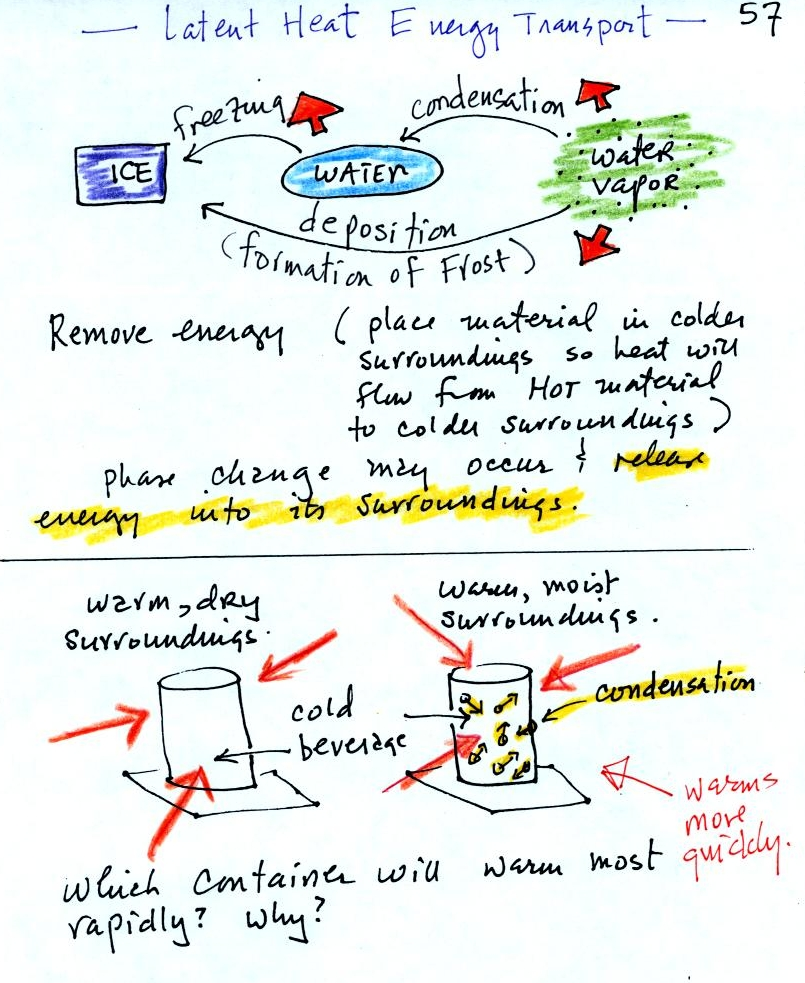 — Latent Heat Energy Transport — 57
freezing
condensation
ICE
WATER
water
vapor
deposition
(formation of Frost)
Remove energy ( place material in colder
surroundings so heat will
flow from HOT material
to colder surroundings )
phase change may occur & release
energy into its surroundings.
warm, dry
surroundings.
warm, moist
surroundings.
cold
beverage
condensation
warms
more
quickly.
which container will warm most
rapidly? why?